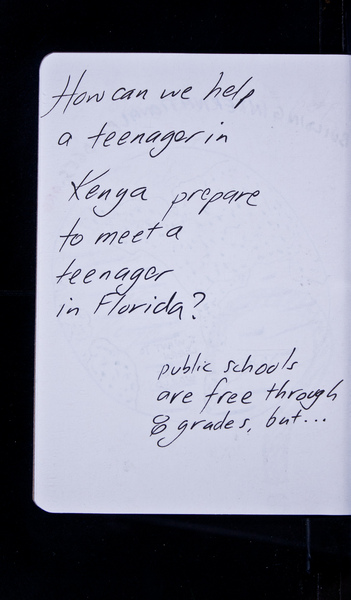 How can we help
a teenager in
Kenya prepare
to meet a
teenager
in Florida?
public schools
are free through
8 grades, but...